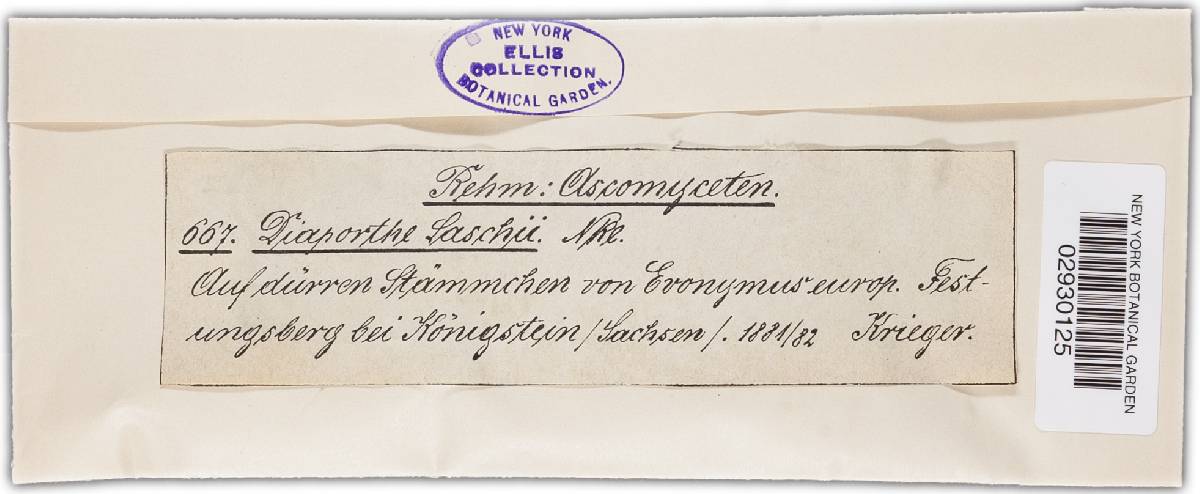 NEW YORK
ELLIS
COLLECTION
BOTANICAL GARDEN.
Rehm: Ascomyceten.
667. Diaporthe Laschii. Nke.
Auf dürren Stämmchen von Evonymus europ. Fest-
ungsberg bei Königstein /Sachsen/. 1881/82 Krieger.
NEW YORK BOTANICAL GARDEN
02930125